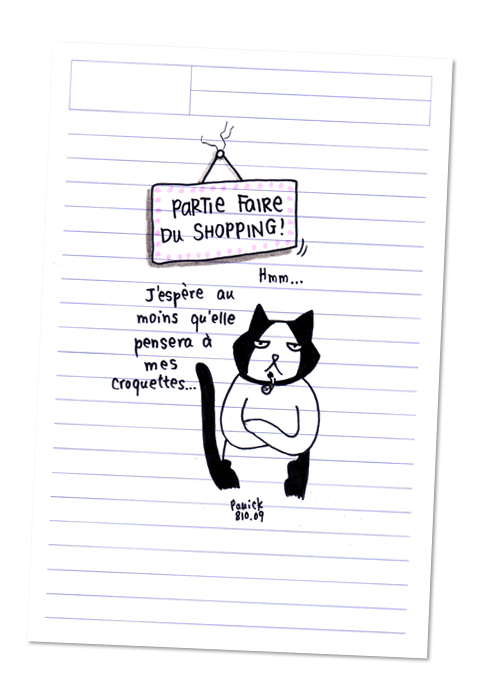 PARTIE FAIRE
DU SHOPPING!
Hmm...
J'espère au
moins qu'elle
pensera à
mes
croquettes...
Panick
810.09